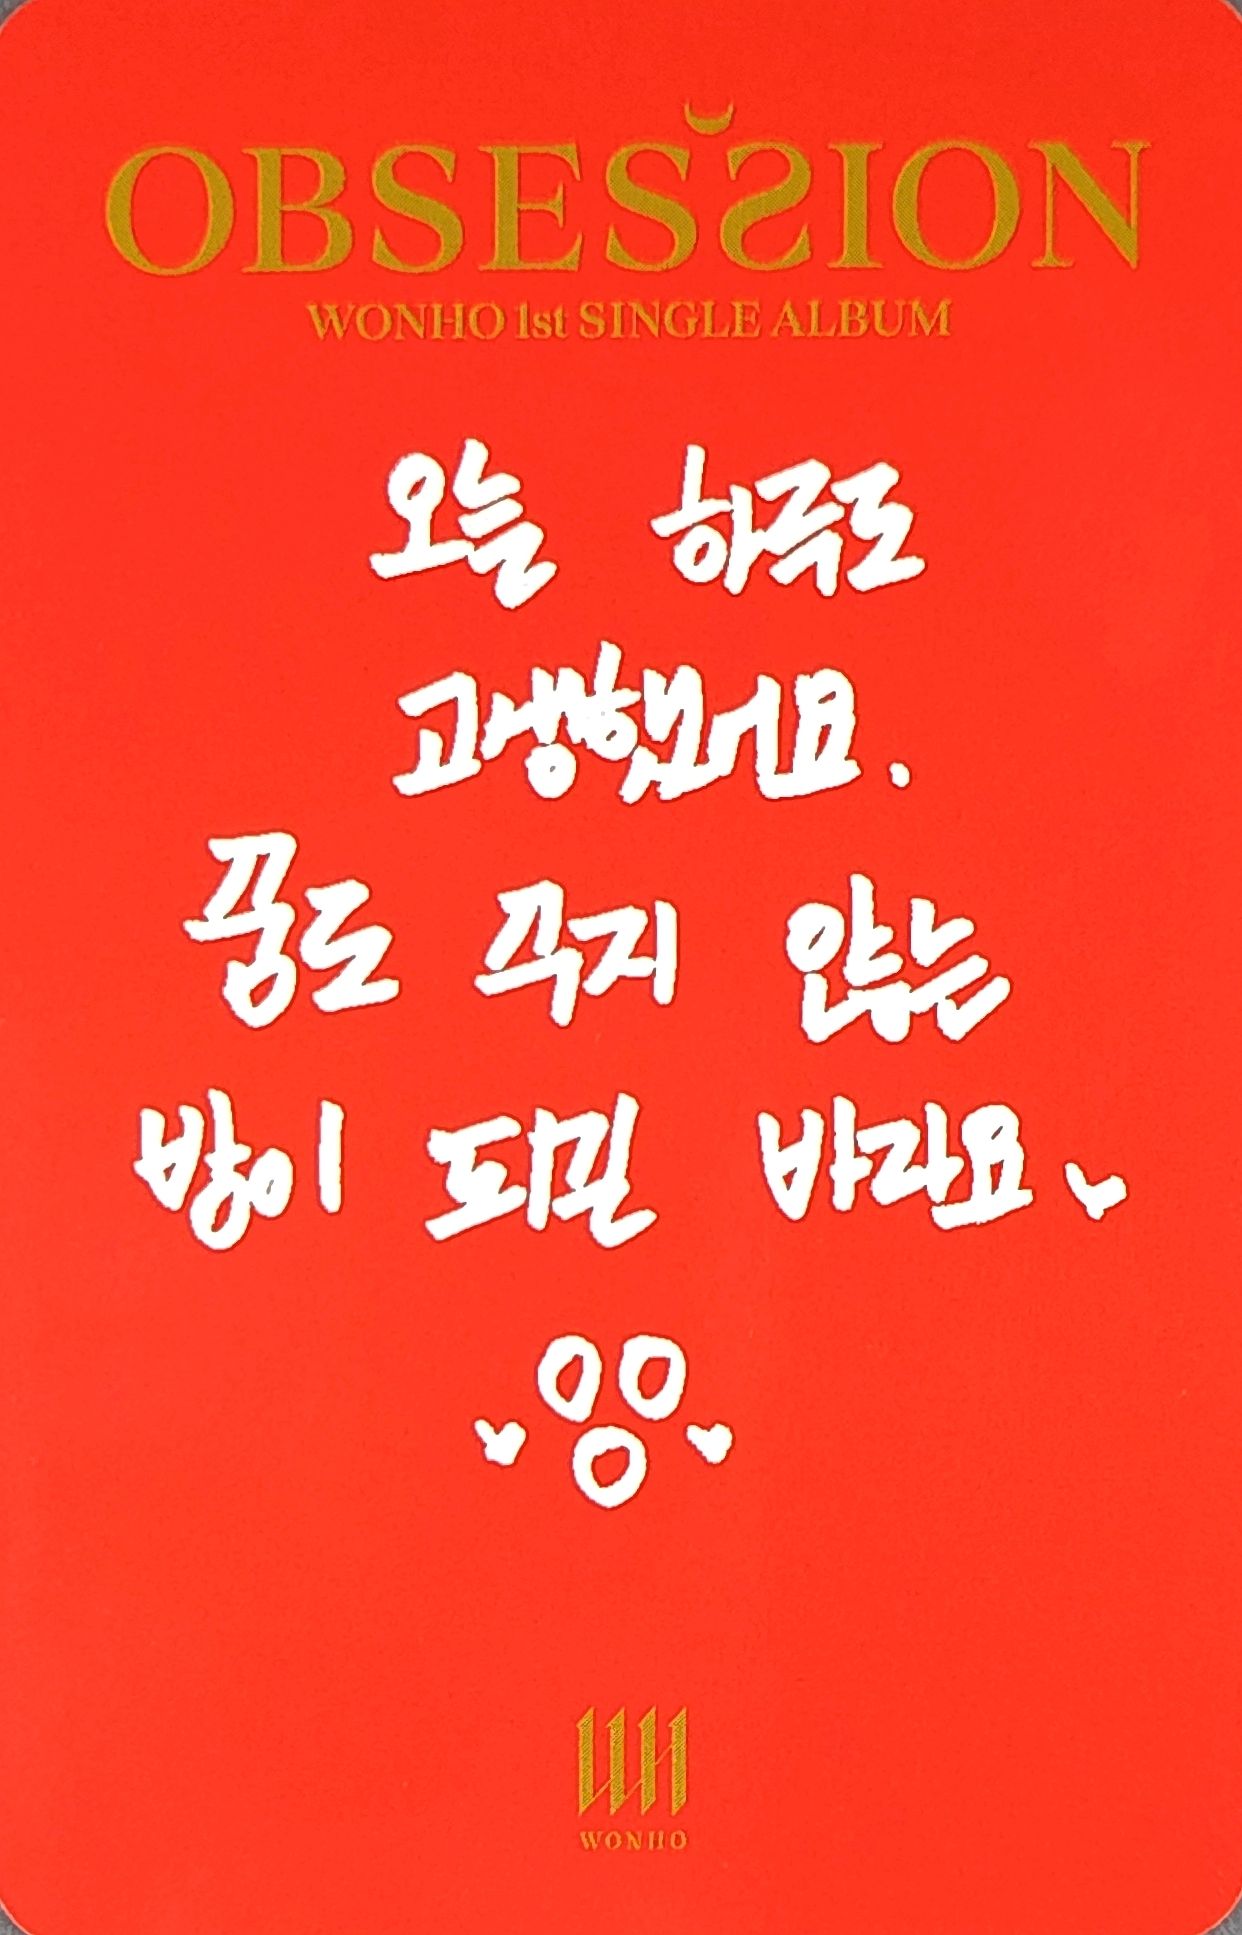 OBSESSION
WONHO 1st SINGLE ALBUM
오늘 하루도
고생했어요.
꿈도 꾸지 않는
밤이 되길 바라요♥
WH
WONHO